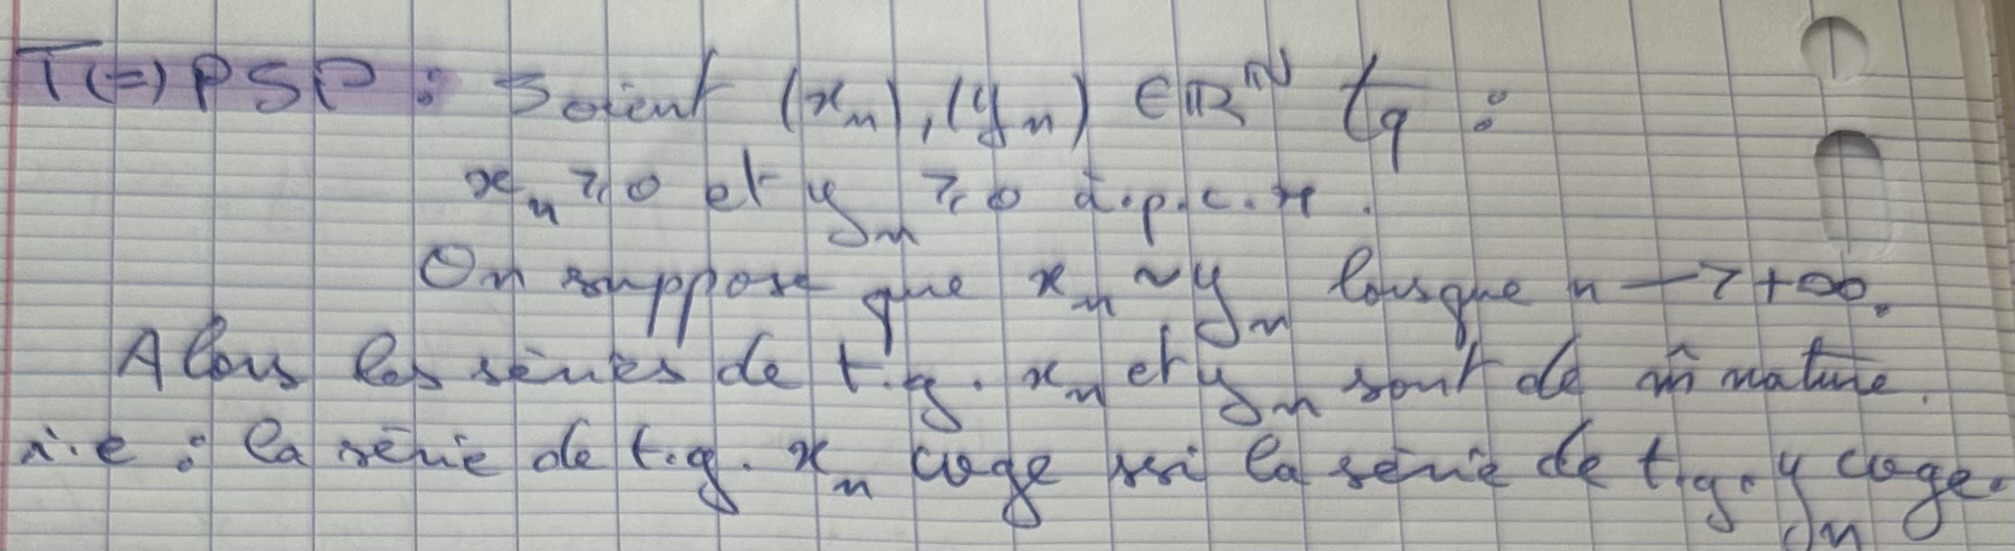 T(=)PSP : Soient (xₙ), (yₙ) ∈ ℝ^ℕ tq :
xₙ ⩾ 0 et yₙ ⩾ 0 à.p.c.r.
On suppose que xₙ ~ yₙ lorsque n → +∞.
Alors les séries de t.g. xₙ et yₙ sont de m̂ nature.
i.e : la série de t.g. xₙ cvge ssi la série de t.g. yₙ cvge.